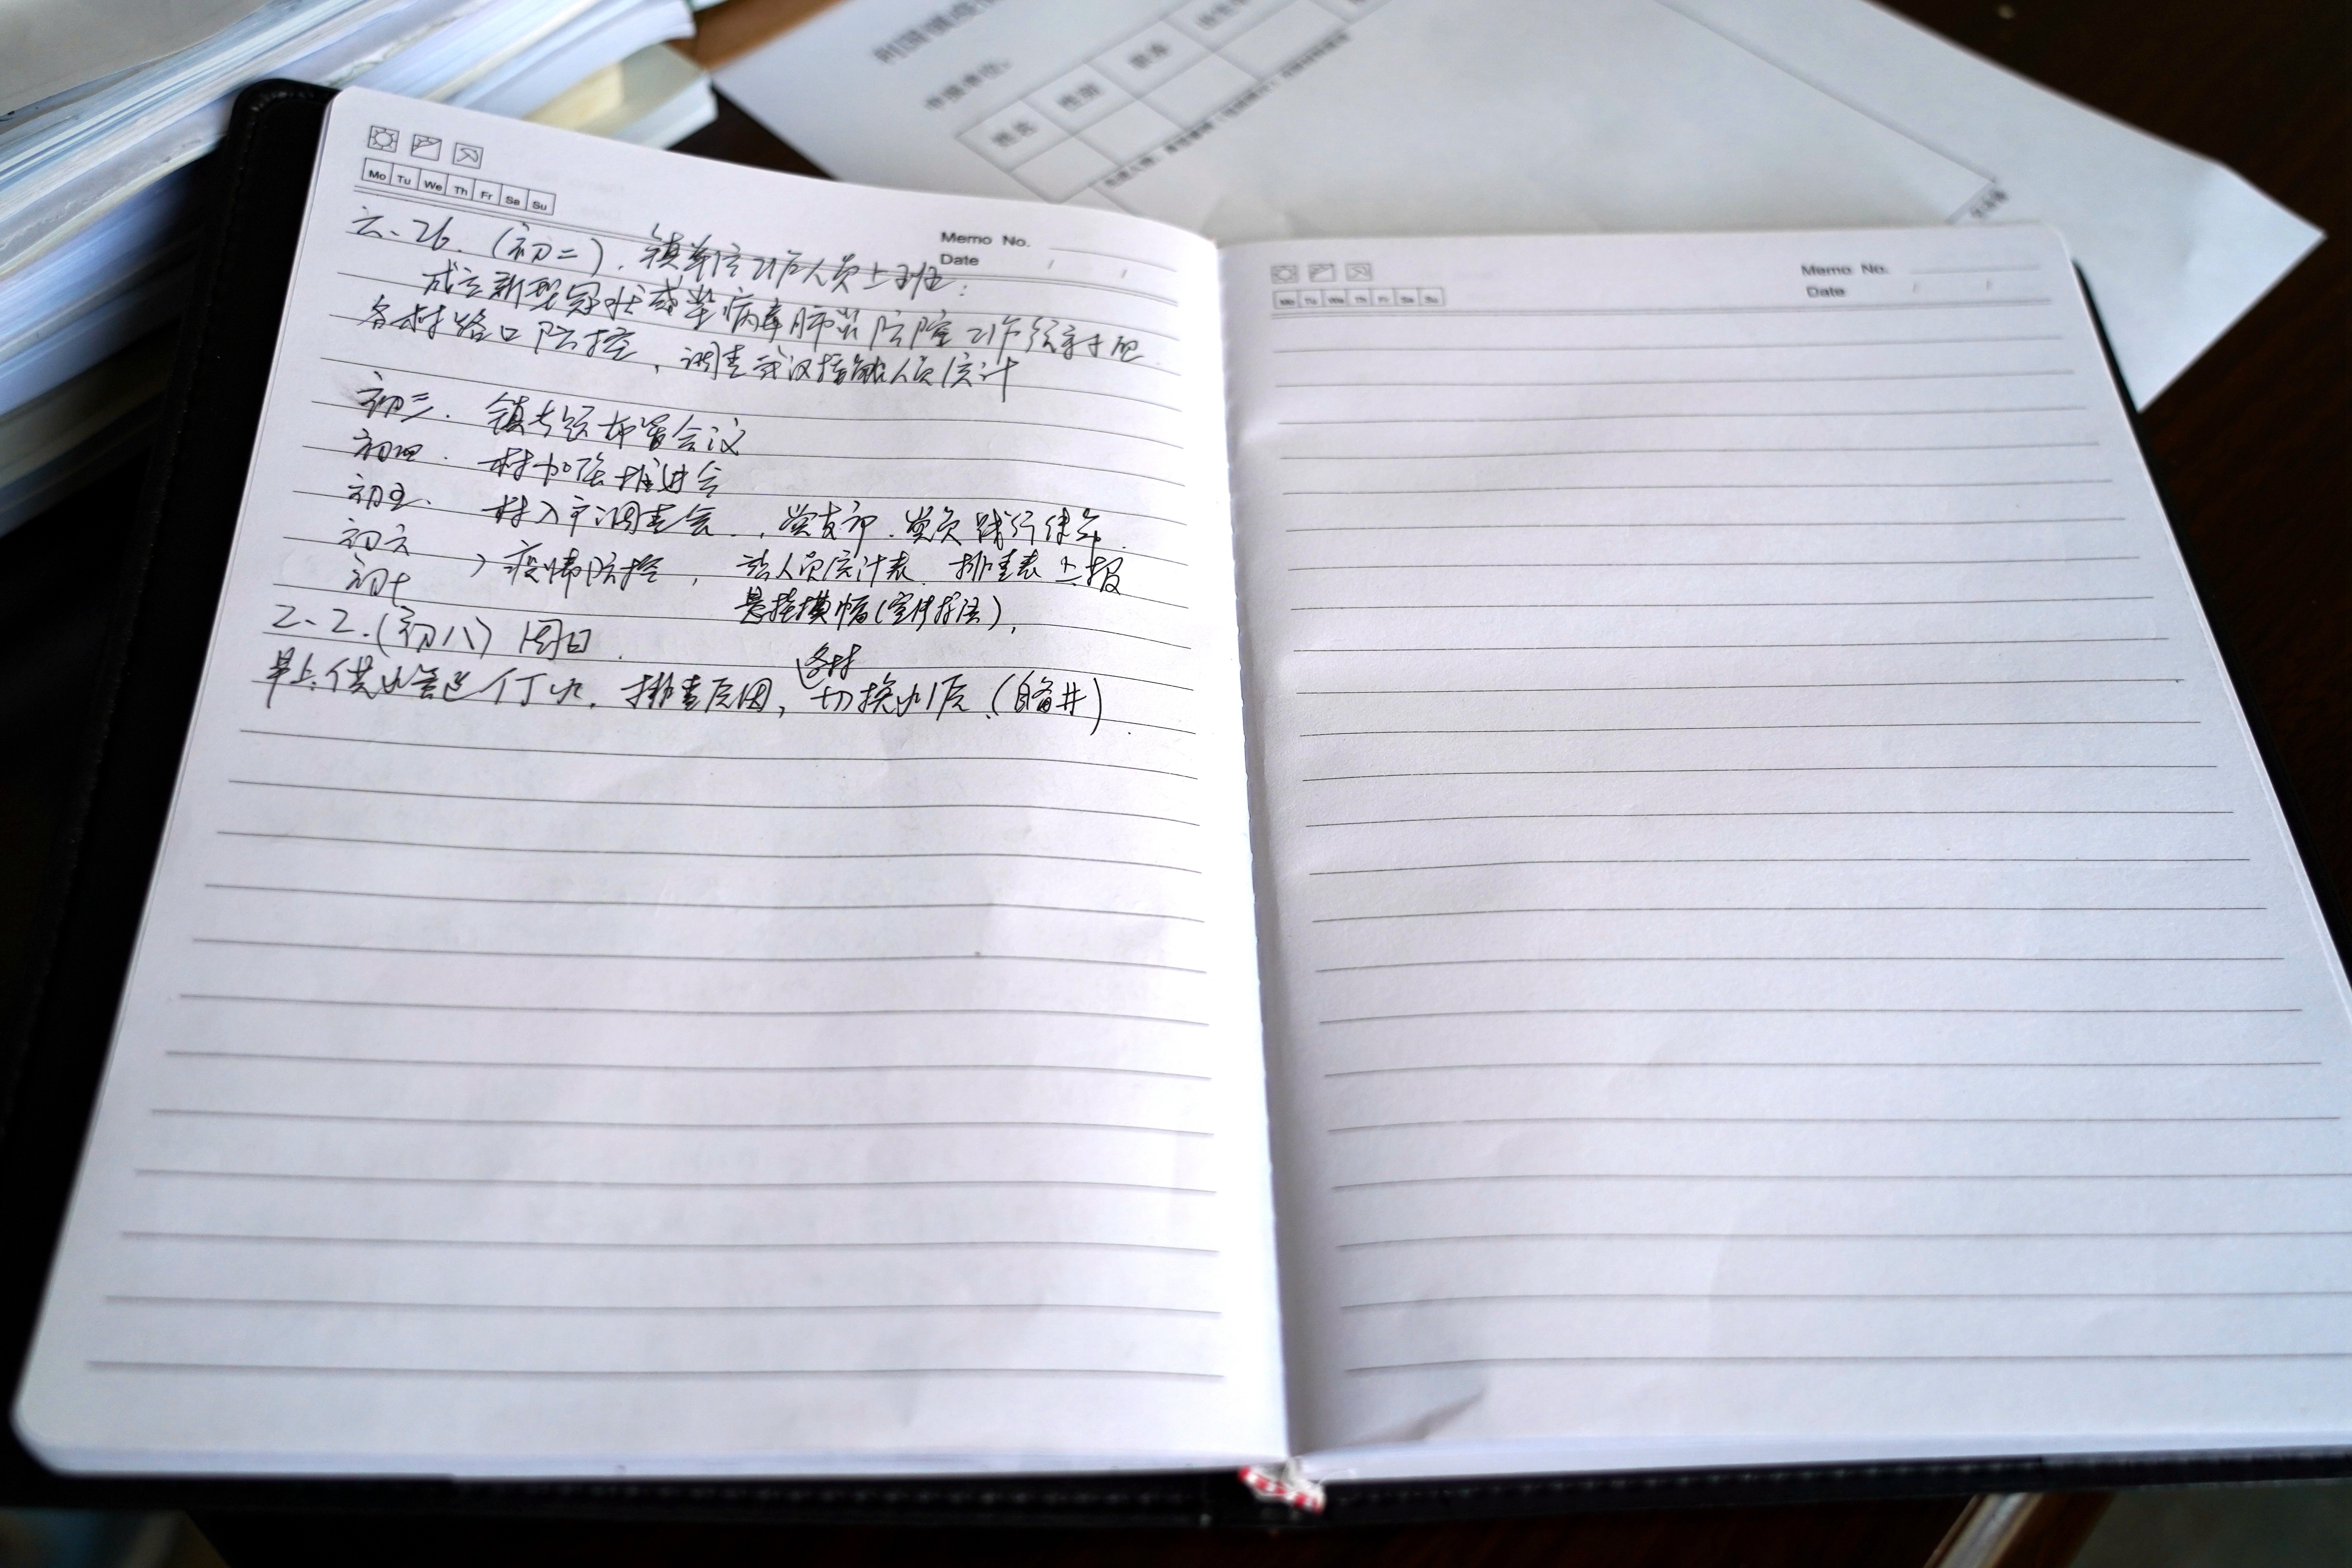 Mo Tu We Th Fr Sa Su
Memo No.
Date / /
.26.(初二).镇单位工作人员上班:
成立新型冠状感染病毒肺炎防控工作领导
各村路口防控,调查武汉接触人员统计
初三.镇专题部署会议
初四.村加强推进会
初五.村入户调查会.,党支部.党员践行使命.
初六
疫情防控,人员统计表.排查表上报
初七
悬挂横幅(宣传标语),
2.2.(初八)周日.
各村
早上.供水管道停水.排查原因,切换水源.(自备井).
Memo No.
Date / /
Mo Tu We Th Fr Sa Su
姓名 性别